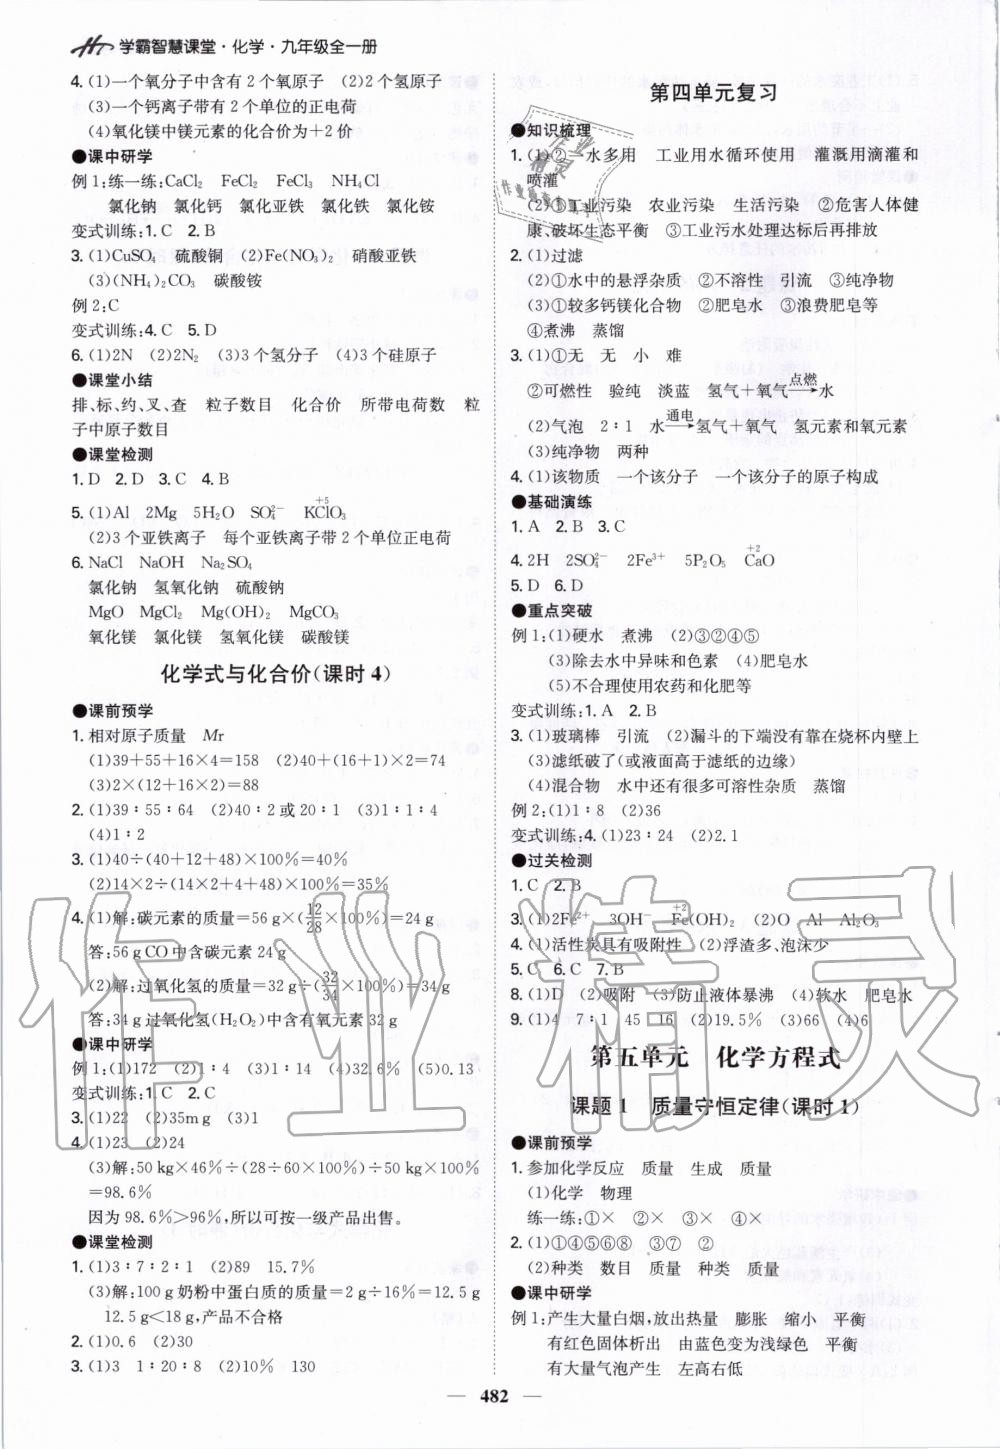 学霸智慧课堂·化学·九年级全一册
4.(1)一个氧分子中含有2个氧原子 (2)2个氢原子
(3)一个钙离子带有2个单位的正电荷
(4)氧化镁中镁元素的化合价为+2价
●课中研学
例1:练一练:CaCl₂ FeCl₂ FeCl₃ NH₄Cl
氯化钠 氯化钙 氯化亚铁 氯化铁 氯化铵
变式训练:1.C 2.B
3.(1)CuSO₄ 硫酸铜 (2)Fe(NO₃)₂ 硝酸亚铁
(3)(NH₄)₂CO₃ 碳酸铵
例2:C
变式训练:4.C 5.D
6.(1)2N (2)2N₂ (3)3个氢分子 (4)3个硅原子
●课堂小结
排、标、约、叉、查 粒子数目 化合价 所带电荷数 粒
子中原子数目
●课堂检测
1.D 2.D 3.C 4.B
5.(1)Al 2Mg 5H₂O SO₄²⁻ K⁺⁵ClO₃
(2)3个亚铁离子 每个亚铁离子带2个单位正电荷
6.NaCl NaOH Na₂SO₄
氯化钠 氢氧化钠 硫酸钠
MgO MgCl₂ Mg(OH)₂ MgCO₃
氧化镁 氯化镁 氢氧化镁 碳酸镁
化学式与化合价(课时4)
●课前预学
1.相对原子质量 Mr
(1)39+55+16×4=158 (2)40+(16+1)×2=74
(3)2×(12+16×2)=88
2.(1)39∶55∶64 (2)40∶2或20∶1 (3)1∶1∶4
(4)1∶2
3.(1)40÷(40+12+48)×100%=40%
(2)14×2÷(14×2+4+48)×100%=35%
4.(1)解:碳元素的质量=56 g×(12/28×100%)=24 g
答:56 g CO中含碳元素24 g
(2)解:过氧化氢的质量=32 g÷(32/34×100%)=34 g
答:34 g过氧化氢(H₂O₂)中含有氧元素32 g
●课中研学
例1:(1)172 (2)1∶4 (3)1∶14 (4)32.6% (5)0.13
变式训练:1.C 2.C
3.(1)22 (2)35mg (3)1
4.(1)23 (2)24
(3)解:50 kg×46%÷(28÷60×100%)÷50 kg×100%
=98.6%
因为98.6%>96%,所以可按一级产品出售。
●课堂检测
1.(1)3∶7∶2∶1 (2)89 15.7%
(3)解:100 g奶粉中蛋白质的质量=2 g÷16%=12.5 g
12.5 g<18 g,产品不合格
2.(1)0.6 (2)30
3.(1)3 1∶20∶8 (2)10% 130
第四单元复习
●知识梳理
1.(1)②一水多用 工业用水循环使用 灌溉用滴灌和
喷灌
(2)①工业污染 农业污染 生活污染 ②危害人体健
康、破坏生态平衡 ③工业污水处理达标后再排放
2.(1)过滤
(2)①水中的悬浮杂质 ②不溶性 引流 ③纯净物
(3)①较多钙镁化合物 ②肥皂水 ③浪费肥皂等
④煮沸 蒸馏
3.(1)①无 无 小 难
②可燃性 验纯 淡蓝 氢气+氧气 点燃→ 水
(2)气泡 2∶1 水 通电→ 氢气+氧气 氢元素和氧元素
(3)纯净物 两种
4.(1)该物质 一个该分子 一个该分子的原子构成
●基础演练
1.A 2.B 3.C
4.2H 2SO₄²⁻ 2Fe³⁺ 5P₂O₅ ⁺²CaO
5.D 6.D
●重点突破
例1:(1)硬水 煮沸 (2)③②④⑤
(3)除去水中异味和色素 (4)肥皂水
(5)不合理使用农药和化肥等
变式训练:1.A 2.B
3.(1)玻璃棒 引流 (2)漏斗的下端没有靠在烧杯内壁上
(3)滤纸破了(或液面高于滤纸的边缘)
(4)混合物 水中还有很多可溶性杂质 蒸馏
例2:(1)1∶8 (2)36
变式训练:4.(1)23∶24 (2)2.1
●过关检测
1.C 2.B
3.(1)2Fe²⁺ 3OH⁻ ⁺²Fe(OH)₂ (2)O Al Al₂O₃
4.(1)活性炭具有吸附性 (2)浮渣多、泡沫少
5.C 6.C 7.B
8.(1)D (2)吸附 (3)防止液体暴沸 (4)软水 肥皂水
9.(1)4 7∶1 45 16 (2)19.5% (3)66 (4)6
第五单元 化学方程式
课题1 质量守恒定律(课时1)
●课前预学
1.参加化学反应 质量 生成 质量
(1)化学 物理
练一练:①× ②× ③× ④×
2.(1)①④⑤⑥⑧ ③⑦ ②
(2)种类 数目 质量 种类 质量
●课中研学
例1:产生大量白烟,放出热量 膨胀 缩小 平衡
有红色固体析出 由蓝色变为浅绿色 平衡
有大量气泡产生 左高右低
482
作业精灵